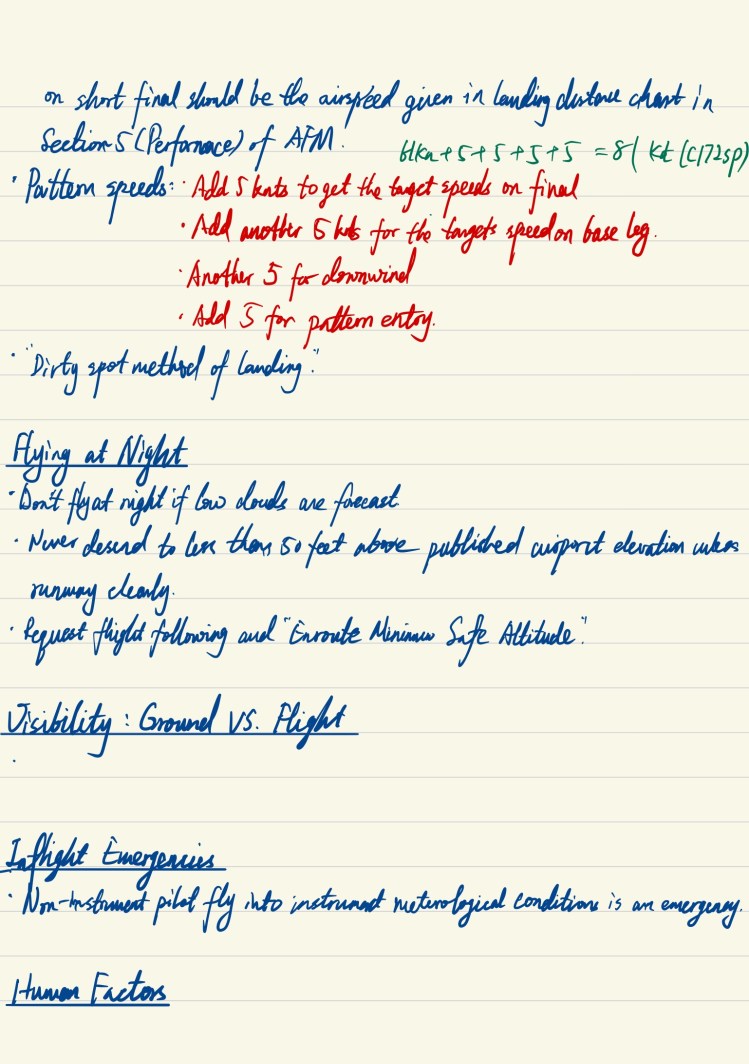 on short final should be the airspeed given in landing distance chart in
Section 5 (Perfornace) of AFM.
61kn + 5 + 5 + 5 + 5 = 81 kt (C172sp)
· Pattern speeds: · Add 5 knts to get the target speeds on final
· Add another 5 kts for the targets speed on base leg.
· Another 5 for downwind
· Add 5 for pattern entry.
· "Dirty spot method of landing."
Flying at Night
· Don't fly at night if low clouds are forecast
· Never descend to less than 50 feet above published airport elevation unless
runway clearly.
· Request flight following and "Enroute Minimum Safe Altitude."
Visibility : Ground VS. Flight
·
Inflight Emergencies
· Non-instrument pilot fly into instrument meterological conditions is an emergency.
Human Factors